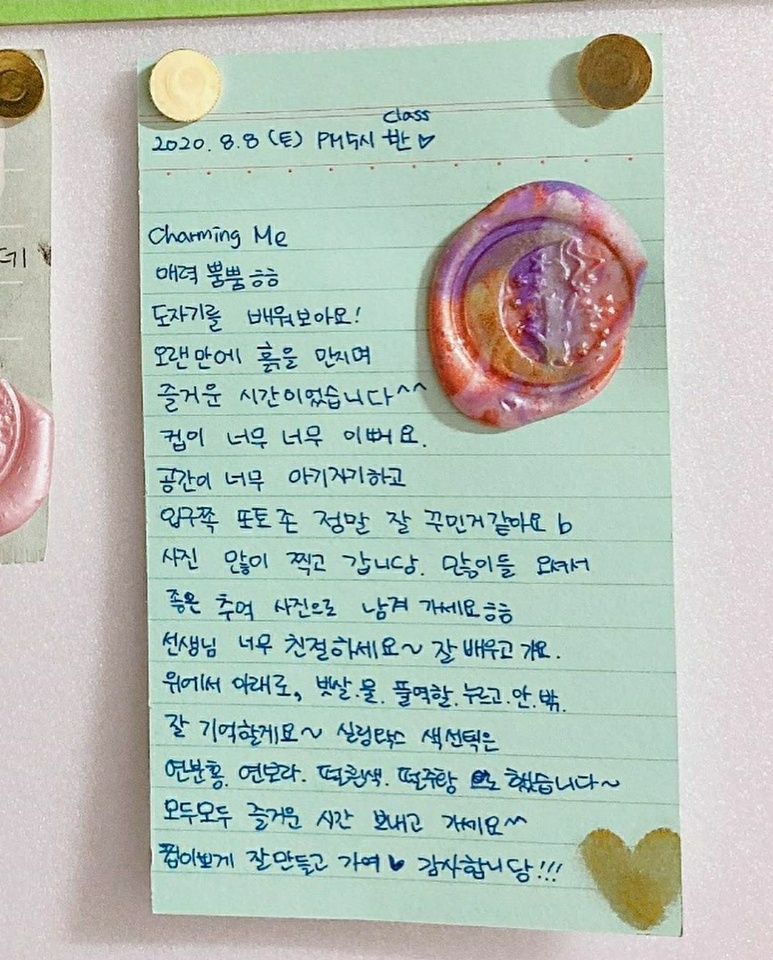 2020. 8.8 (토) PM 5시 반♡
class
Charming Me
매력 뿜뿜 ㅎㅎ
도자기를 배워보아요!
오랜만에 흙을 만지며
즐거운 시간이었습니다^^
컵이 너무 너무 이뻐요.
공간이 너무 아기자기하고
입구쪽 포토존 정말 잘 꾸민거같아요 b
사진 많이 찍고 갑니당. 많이들 오셔서
좋은 추억 사진으로 남겨 가세요ㅎㅎ
선생님 너무 친절하세요~ 잘 배우고 가요.
위에서 아래로, 빗살.물. 풀역할.누르고.안.밖.
잘 기억할게요~ 실링왁스 색선택은
연분홍. 연보라. 펄흰색. 펄주황 으로 했습니다~
모두모두 즐거운 시간 보내고 가세요^^
컵이쁘게 잘만들고 가여♥ 감사합니당!!!